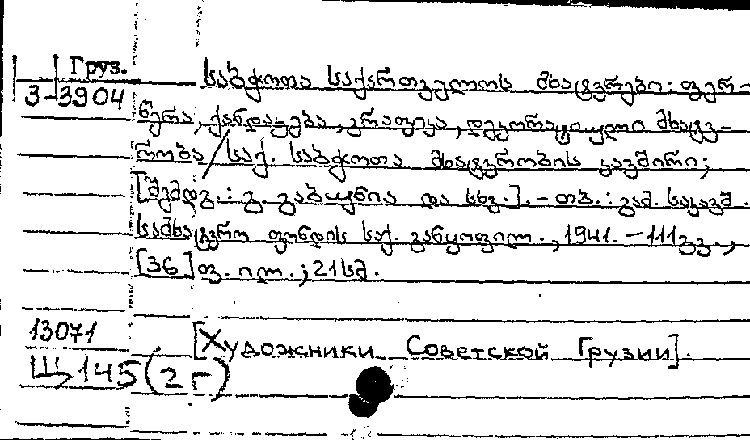 Груз.
3-3904
საბჭოთა საქართველოს მხატვრები: ფერ-
წერა, ქანდაკება, გრაფიკა, დეკორატიული მხატვ-
რობა / საქ. საბჭოთა მხატვრობის კავშირი;
[შემდგ.: გ. და სხვ.]. - თბ.: გამ. საკავშ.
სამხატვრო ფონდის საქ. განყოფილ., 1941. - 111 გვ.,
[36] ფ. ილ.; 21 სმ.
13071
[Художники Советской Грузии].
Щ145(2Г)